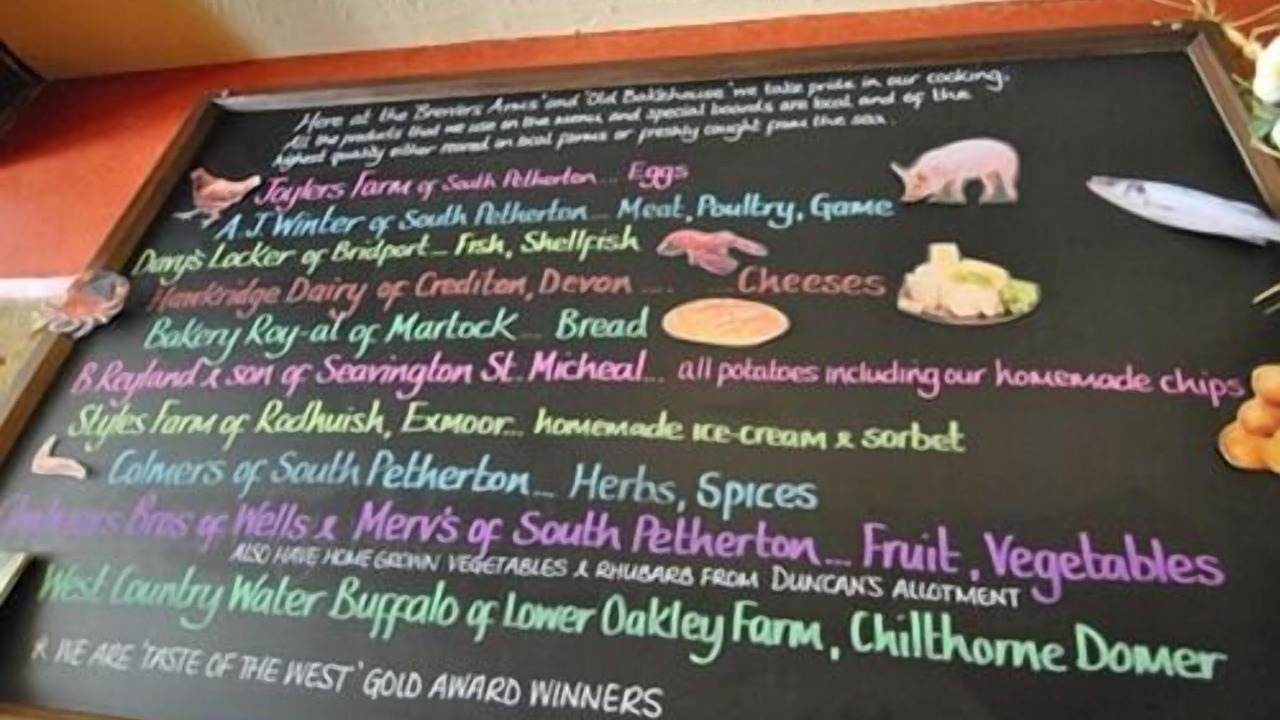 Here at the 'Brewers Arms' and 'Old Bakehouse' we take pride in our cooking.
All the products that we use on the menu and special boards are local and of the
highest quality either reared on local farms or freshly caught from the sea.
Taylers Farm of South Petherton... Eggs
A.J Winter of South Petherton... Meat, Poultry, Game
Davy's Locker of Bridport... Fish, Shellfish
Hawkridge Dairy of Crediton, Devon .... Cheeses
Bakery Roy-al of Martock ... Bread
B.Reyland & son of Seavington St. Micheal... all potatoes including our homemade chips
Styles Farm of Rodhuish, Exmoor... homemade ice-cream & sorbet
Colmers of South Petherton... Herbs, Spices
Bros of Wells & Merv's of South Petherton... Fruit, Vegetables
ALSO HAVE HOME GROWN VEGETABLES & RHUBARB FROM DUNCAN'S ALLOTMENT
West Country Water Buffalo of Lower Oakley Farm, Chilthorne Domer
* WE ARE 'TASTE OF THE WEST' GOLD AWARD WINNERS